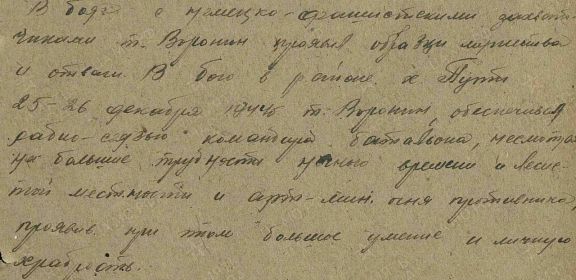 В боях с немецко-фашистскими захват-
чиками т. Воронин проявил образцы мужества
и отваги. В бою в районе х. Пути
25-26 декабря 1944г т. Воронин, обеспечивая
радио-связью командира батальона, несмотря
на большие трудности ночного времени и лесис-
той местности и арт-мин. огня противника,
проявив при этом большое умение и личную
храбрость.